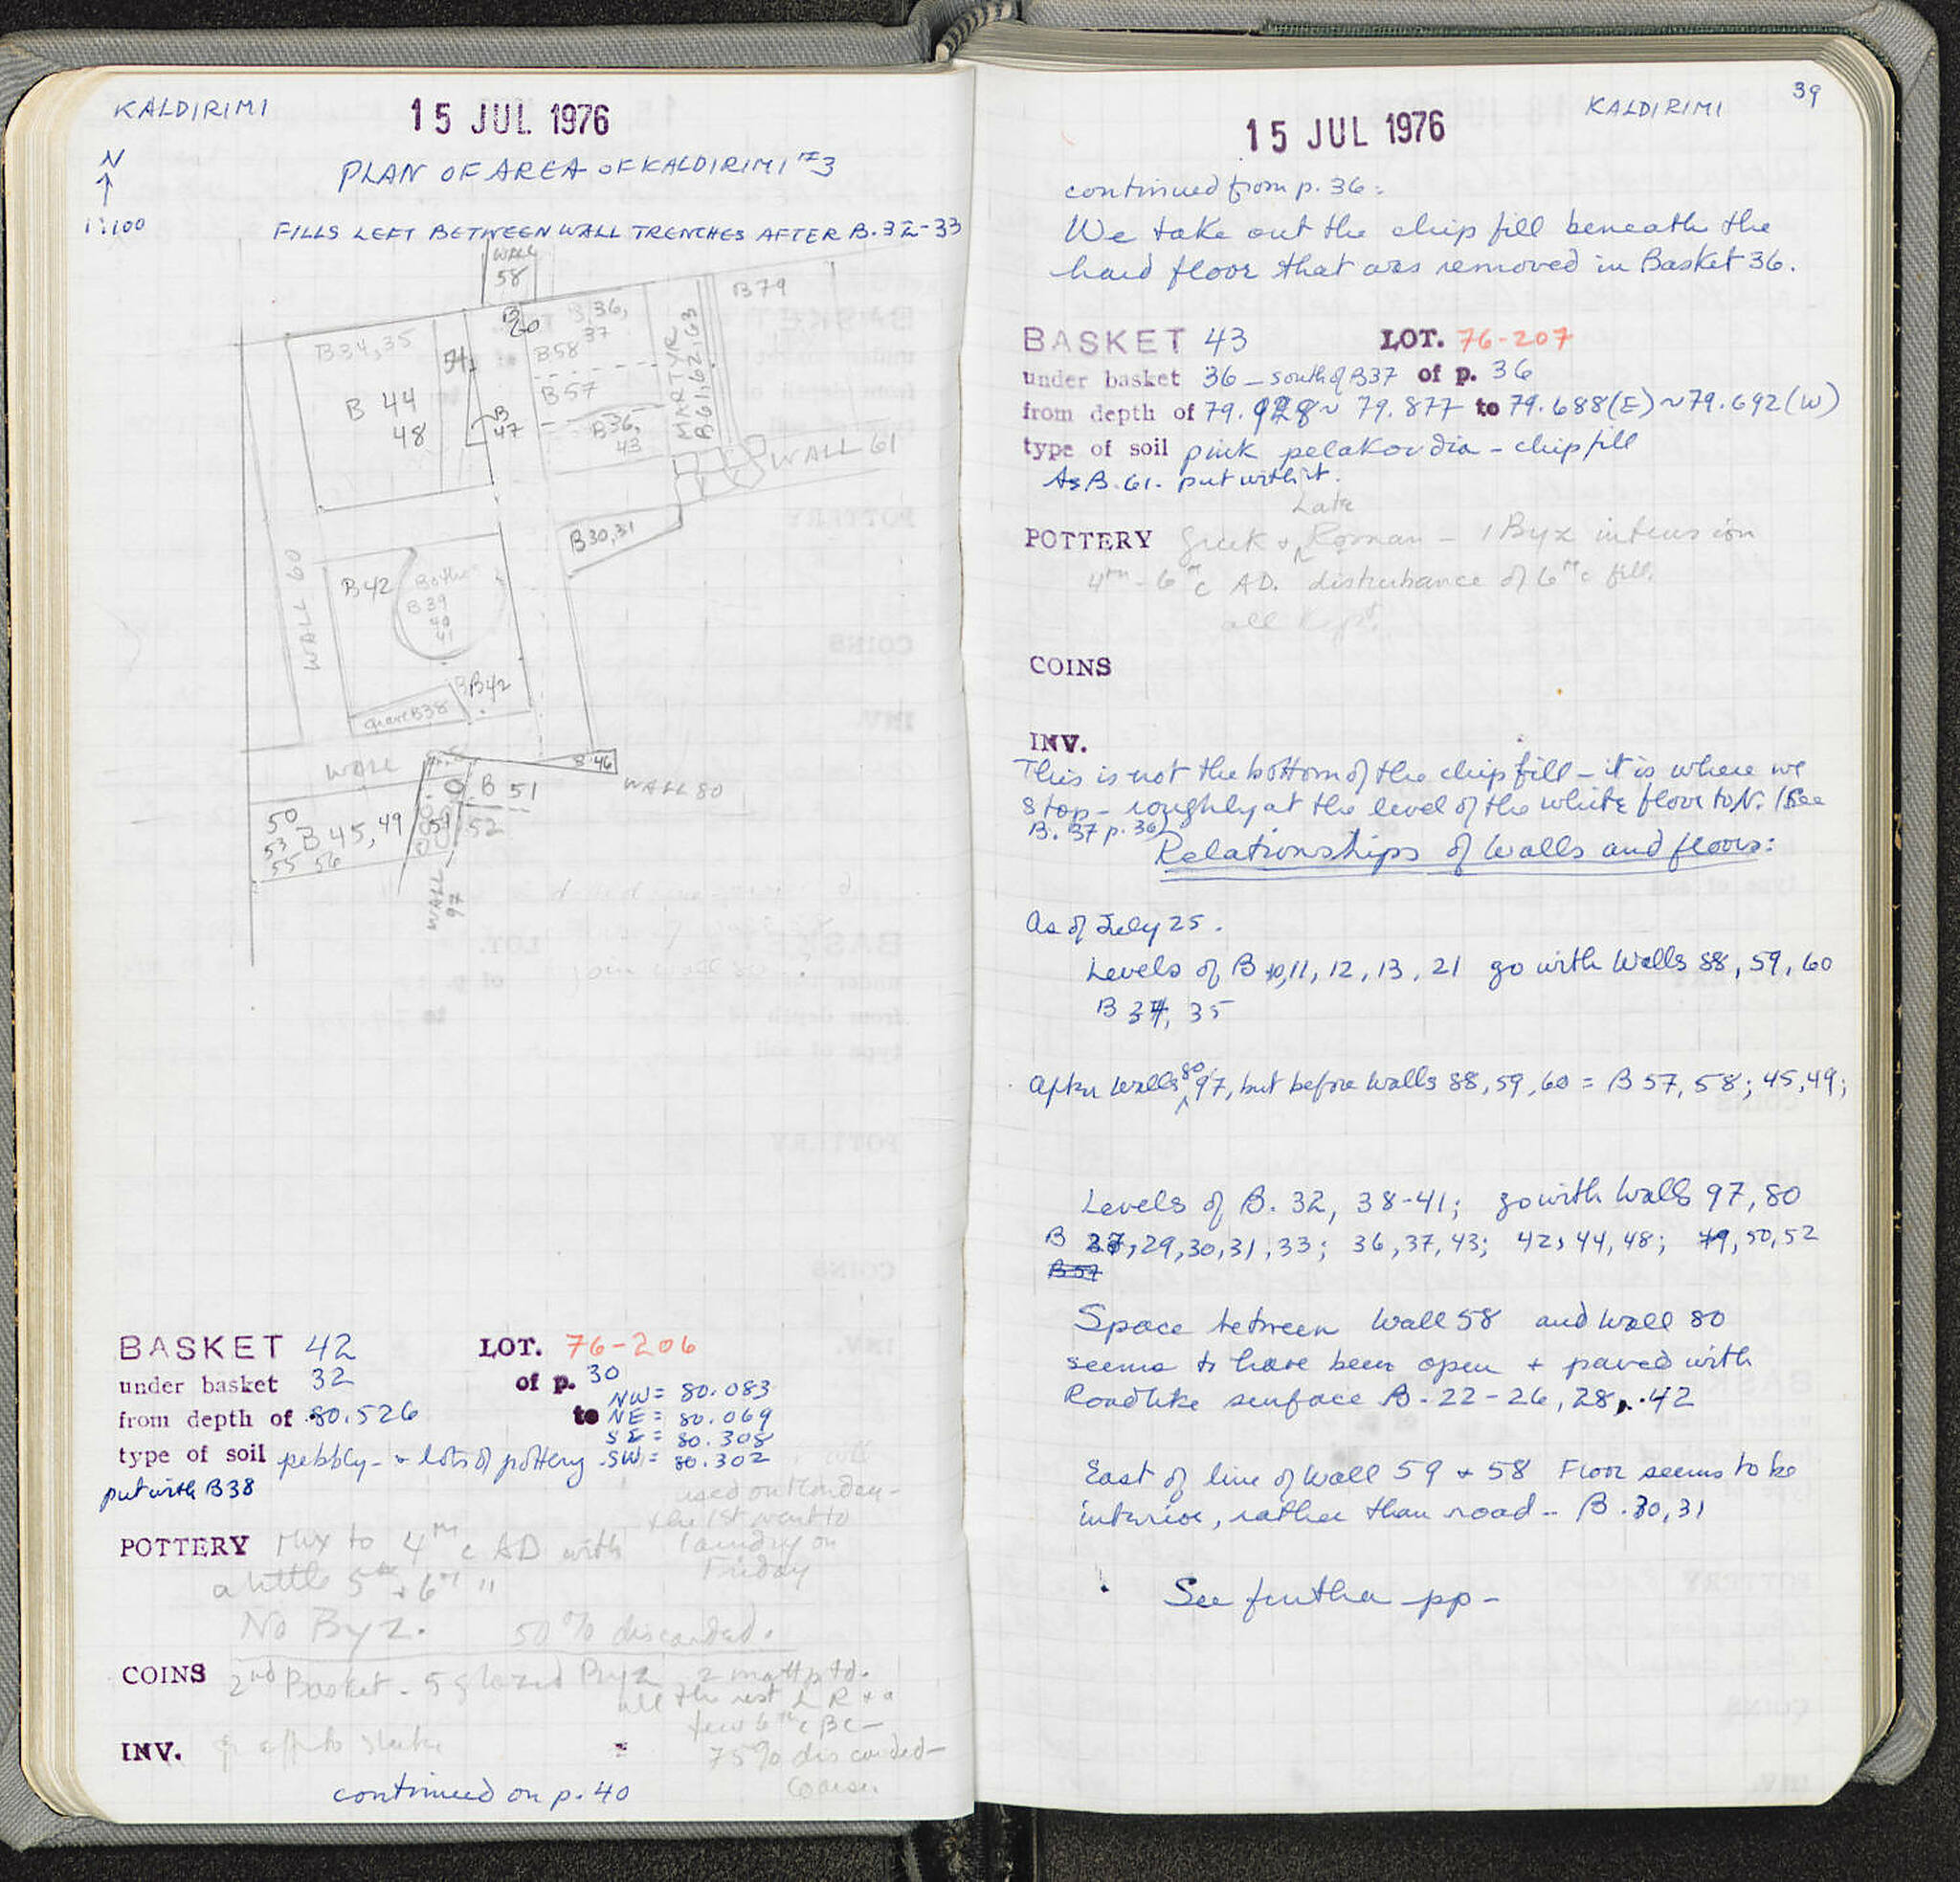 KALDIRIMI
15 JUL 1976
N
PLAN OF AREA OF KALDIRIMI #3
1:100
FILLS LEFT BETWEEN WALL TRENCHES AFTER B.32-33
WALL
58
B79
B
60
B 36,
37
B34,35
54
B58
B57
MARTYR
B61,62,63
B 44
48
B
47
B36,
43
WALL 61
B30,31
WALL 60
B42
Bothros
B39
40
41
B42
grave B38
WALL
B 46
WALL 80
B 51
50
B 45, 49
59
52
53
55 56
WALL
97
BASKET 42 LOT. 76-206
under basket 32 of p. 30
from depth of 80.526 to NW = 80.083
NE = 80.069
SE = 80.308
type of soil pebbly - & lots of pottery SW = 80.302
put with B38
used on Monday -
the 1st went to
laundry on
Friday
POTTERY Mix to 4th c AD with
a little 5th + 6th "
No Byz. 50% discarded.
COINS 2nd Basket - 5 glazed Byz 2 matt ptd.
all the rest L R + a
few 6th c BC -
75% discarded -
coarse.
INV.
continued on p. 40
39
KALDIRIMI
15 JUL 1976
continued from p. 36:
We take out the chip fill beneath the
hard floor that was removed in Basket 36.
BASKET 43 LOT. 76-207
under basket 36 - south of B37 of p. 36
from depth of 79.928 ~ 79.877 to 79.688(E) ~ 79.692(W)
type of soil pink pelakoudia - chip fill
As B. 61. put with it.
Late
POTTERY Greek & Roman - 1 Byz intrusion
4th - 6th c AD. disturbance of 6th c fill.
all kept.
COINS
INV.
This is not the bottom of the chip fill - it is where we
stop - roughly at the level of the white floor to N. (See
B. 37 p. 36)
Relationships of Walls and floors:
As of July 25.
Levels of B 10, 11, 12, 13, 21 go with Walls 88, 59, 60
B 34, 35
After Walls 80, 97, but before Walls 88, 59, 60 = B 57, 58; 45, 49;
Levels of B. 32, 38-41; go with Walls 97, 80
B 27, 29, 30, 31, 33; 36, 37, 43; 42, 44, 48; 49, 50, 52
B 57
Space between Wall 58 and Wall 80
seems to have been open + paved with
Roadlike surface B. 22-26, 28, 42
East of line of Wall 59 + 58 Floor seems to be
interior, rather than road - B. 30, 31
See further pp -